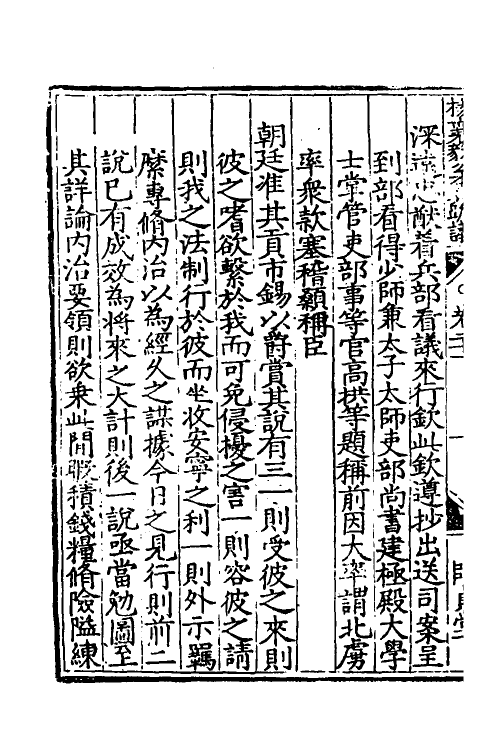 深遠忠猷着兵部看議來行欽此欽遵抄出送司案呈
到部看得少師兼太子太師吏部尚書建極殿大學
士掌管吏部事等官高拱等題稱前因大率謂北虜
率衆款塞稽顙稱臣
朝廷准其貢市錫以爵賞其說有三一則受彼之來則
彼之嗜欲繫於我而可免侵擾之害一則容彼之請
則我之法制行於彼而坐收安寧之利一則外示羈
縻專脩內治以為經久之謀據今日之見行則前二
說已有成效為將來之大計則後一說亟當勉圖至
其詳論內治要領則欲乘此閒暇積錢糧脩險隘練